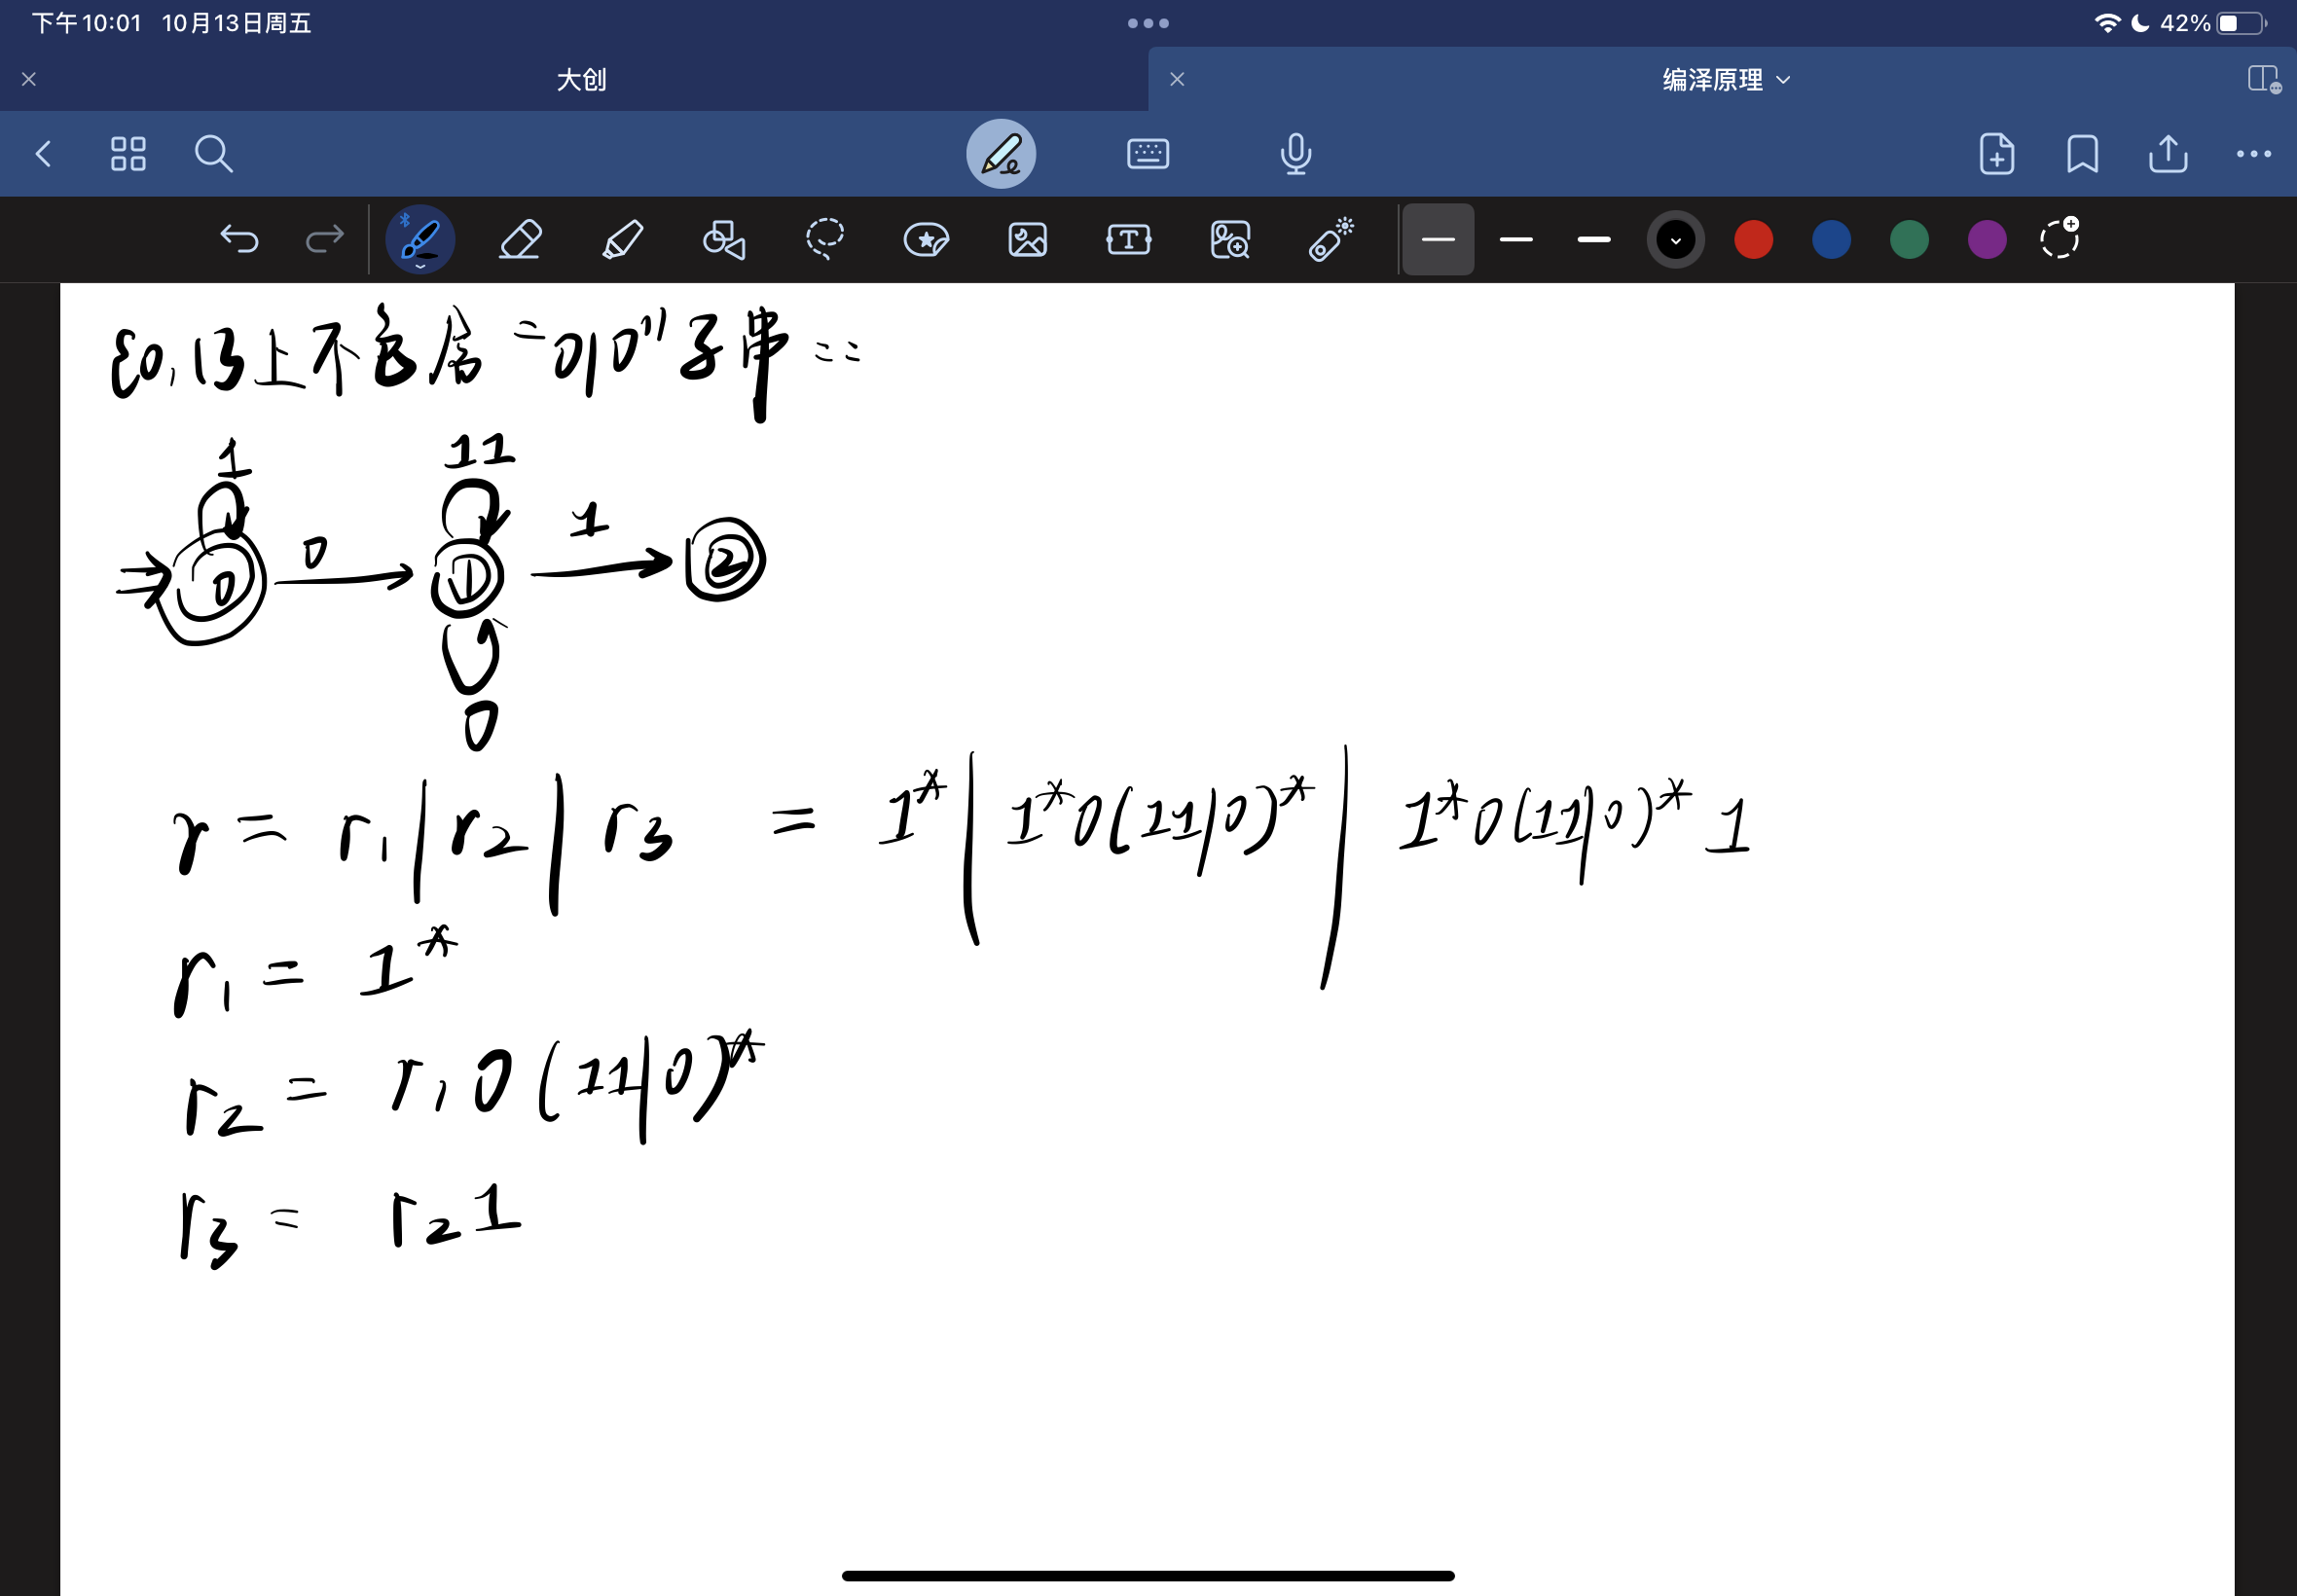 下午10:01 10月13日周五 42%
大创 编泽原理
{0,1}上不含有"010"子串=:
1 11
0 1
0 1 2
0
r = r1 | r2 | r3 = 1* | 1*0(11|0)* | 1*0(11|0)*1
r1 = 1*
r2 = r10(11|0)*
r3 = r21